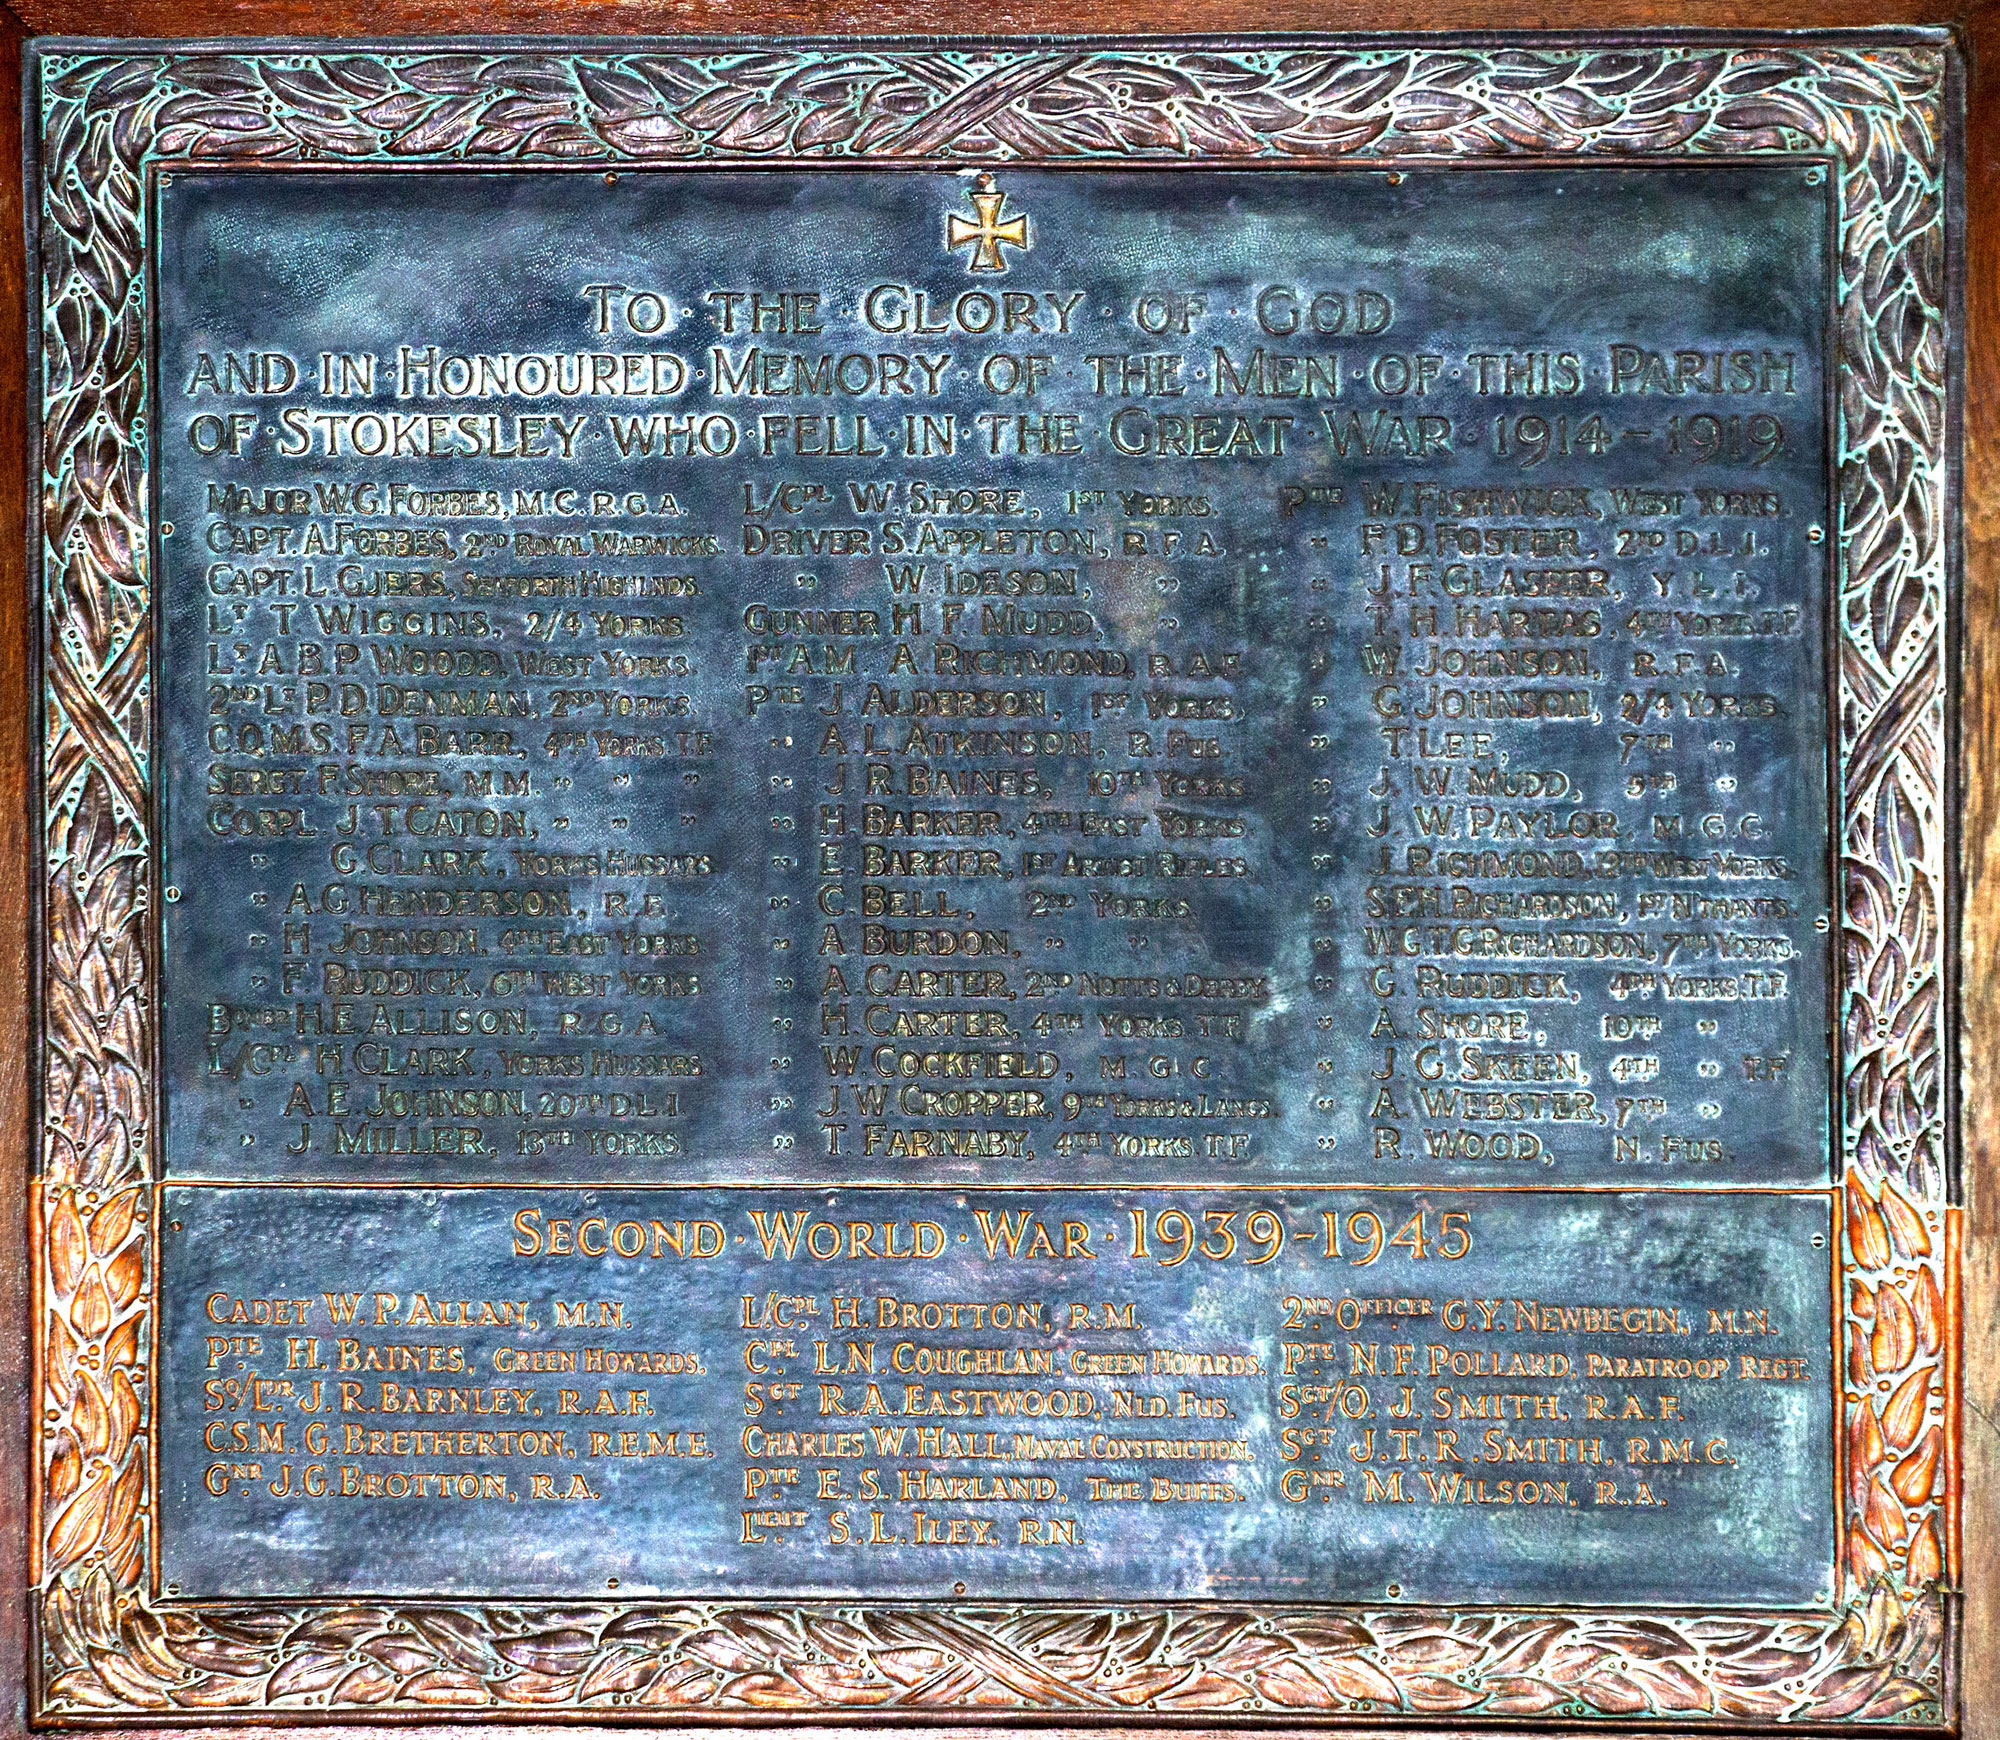 TO · THE · GLORY · OF · GOD
AND · IN · HONOURED · MEMORY · OF · THE · MEN · OF · THIS · PARISH
OF · STOKESLEY · WHO · FELL · IN · THE · GREAT · WAR · 1914 – 1919.
MAJOR W.G. FORBES, M.C. R.G.A.
CAPT. A. FORBES, 2ND ROYAL WARWICKS.
CAPT. L. GJERS, SEAFORTH HIGHLNDS.
LT. T. WIGGINS, 2/4 YORKS.
LT. A.B.P. WOODD, WEST YORKS.
2ND LT. P.D. DENMAN, 2ND YORKS.
C.Q.M.S. F.A. BARR, 4TH YORKS. T.F.
SERGT. F. SHORE, M.M. " " "
CORPL. J.T. CATON, " " "
" G. CLARK, YORKS HUSSARS.
" A.G. HENDERSON, R.E.
" H. JOHNSON, 4TH EAST YORKS.
" F. RUDDICK, 6TH WEST YORKS.
BOMBR H.E. ALLISON, R.G.A.
L/CPL H. CLARK, YORKS HUSSARS.
" A.E. JOHNSON, 20TH D.L.I.
" J. MILLER, 13TH YORKS.
L/CPL W. SHORE, 1ST YORKS.
DRIVER S. APPLETON, R.F.A.
" W. IDESON, "
GUNNER H.F. MUDD, "
1ST A.M. A. RICHMOND, R.A.F.
PTE J. ALDERSON, 1ST YORKS,
" A.L. ATKINSON, R. FUS.
" J.R. BAINES, 10TH YORKS.
" H. BARKER, 4TH EAST YORKS.
" E. BARKER, 1ST ARTIST RIFLES.
" C. BELL, 2ND YORKS.
" A. BURDON, " "
" A. CARTER, 2ND NOTTS & DERBY.
" H. CARTER, 4TH YORKS T.F.
" W. COCKFIELD, M.G.C.
" J.W. CROPPER, 9TH YORKS & LANCS.
" T. FARNABY, 4TH YORKS. T.F.
PTE W. FISHWICK, WEST YORKS.
" F.D. FOSTER, 2ND D.L.I.
" J.F. GLASPER, Y.L.I.
" T.H. HARTAS, 4TH YORKS. T.F.
" W. JOHNSON, R.F.A.
" G. JOHNSON, 2/4 YORKS.
" T. LEE, 7TH "
" J.W. MUDD, 5TH "
" J.W. PAYLOR, M.G.C.
" J. RICHMOND, WEST YORKS.
" S.F.H. RICHARDSON, 1ST N'THANTS.
" W.G.T.G. RICHARDSON, 7TH YORKS.
" G. RUDDICK, 4TH YORKS. T.F.
" A. SHORE, 10TH "
" J.G. SKEEN, 4TH " T.F.
" A. WEBSTER, 7TH "
" R. WOOD, N. FUS.
SECOND · WORLD · WAR · 1939-1945
CADET W.P. ALLAN, M.N.
PTE H. BAINES, GREEN HOWARDS.
SQ/LDR J.R. BARNLEY, R.A.F.
C.S.M. G. BRETHERTON, R.E.M.E.
GNR J.G. BROTTON, R.A.
L/CPL H. BROTTON, R.M.
CPL L.N. COUGHLAN, GREEN HOWARDS.
SGT R.A. EASTWOOD, NLD. FUS.
CHARLES W. HALL, NAVAL CONSTRUCTION.
PTE E.S. HARLAND, THE BUFFS.
LIEUT S.L. ILEY, R.N.
2ND OFFICER G.Y. NEWBEGIN, M.N.
PTE N.F. POLLARD, PARATROOP REGT.
SGT/O. J. SMITH, R.A.F.
SGT J.T.R. SMITH, R.M.C.
GNR M. WILSON, R.A.